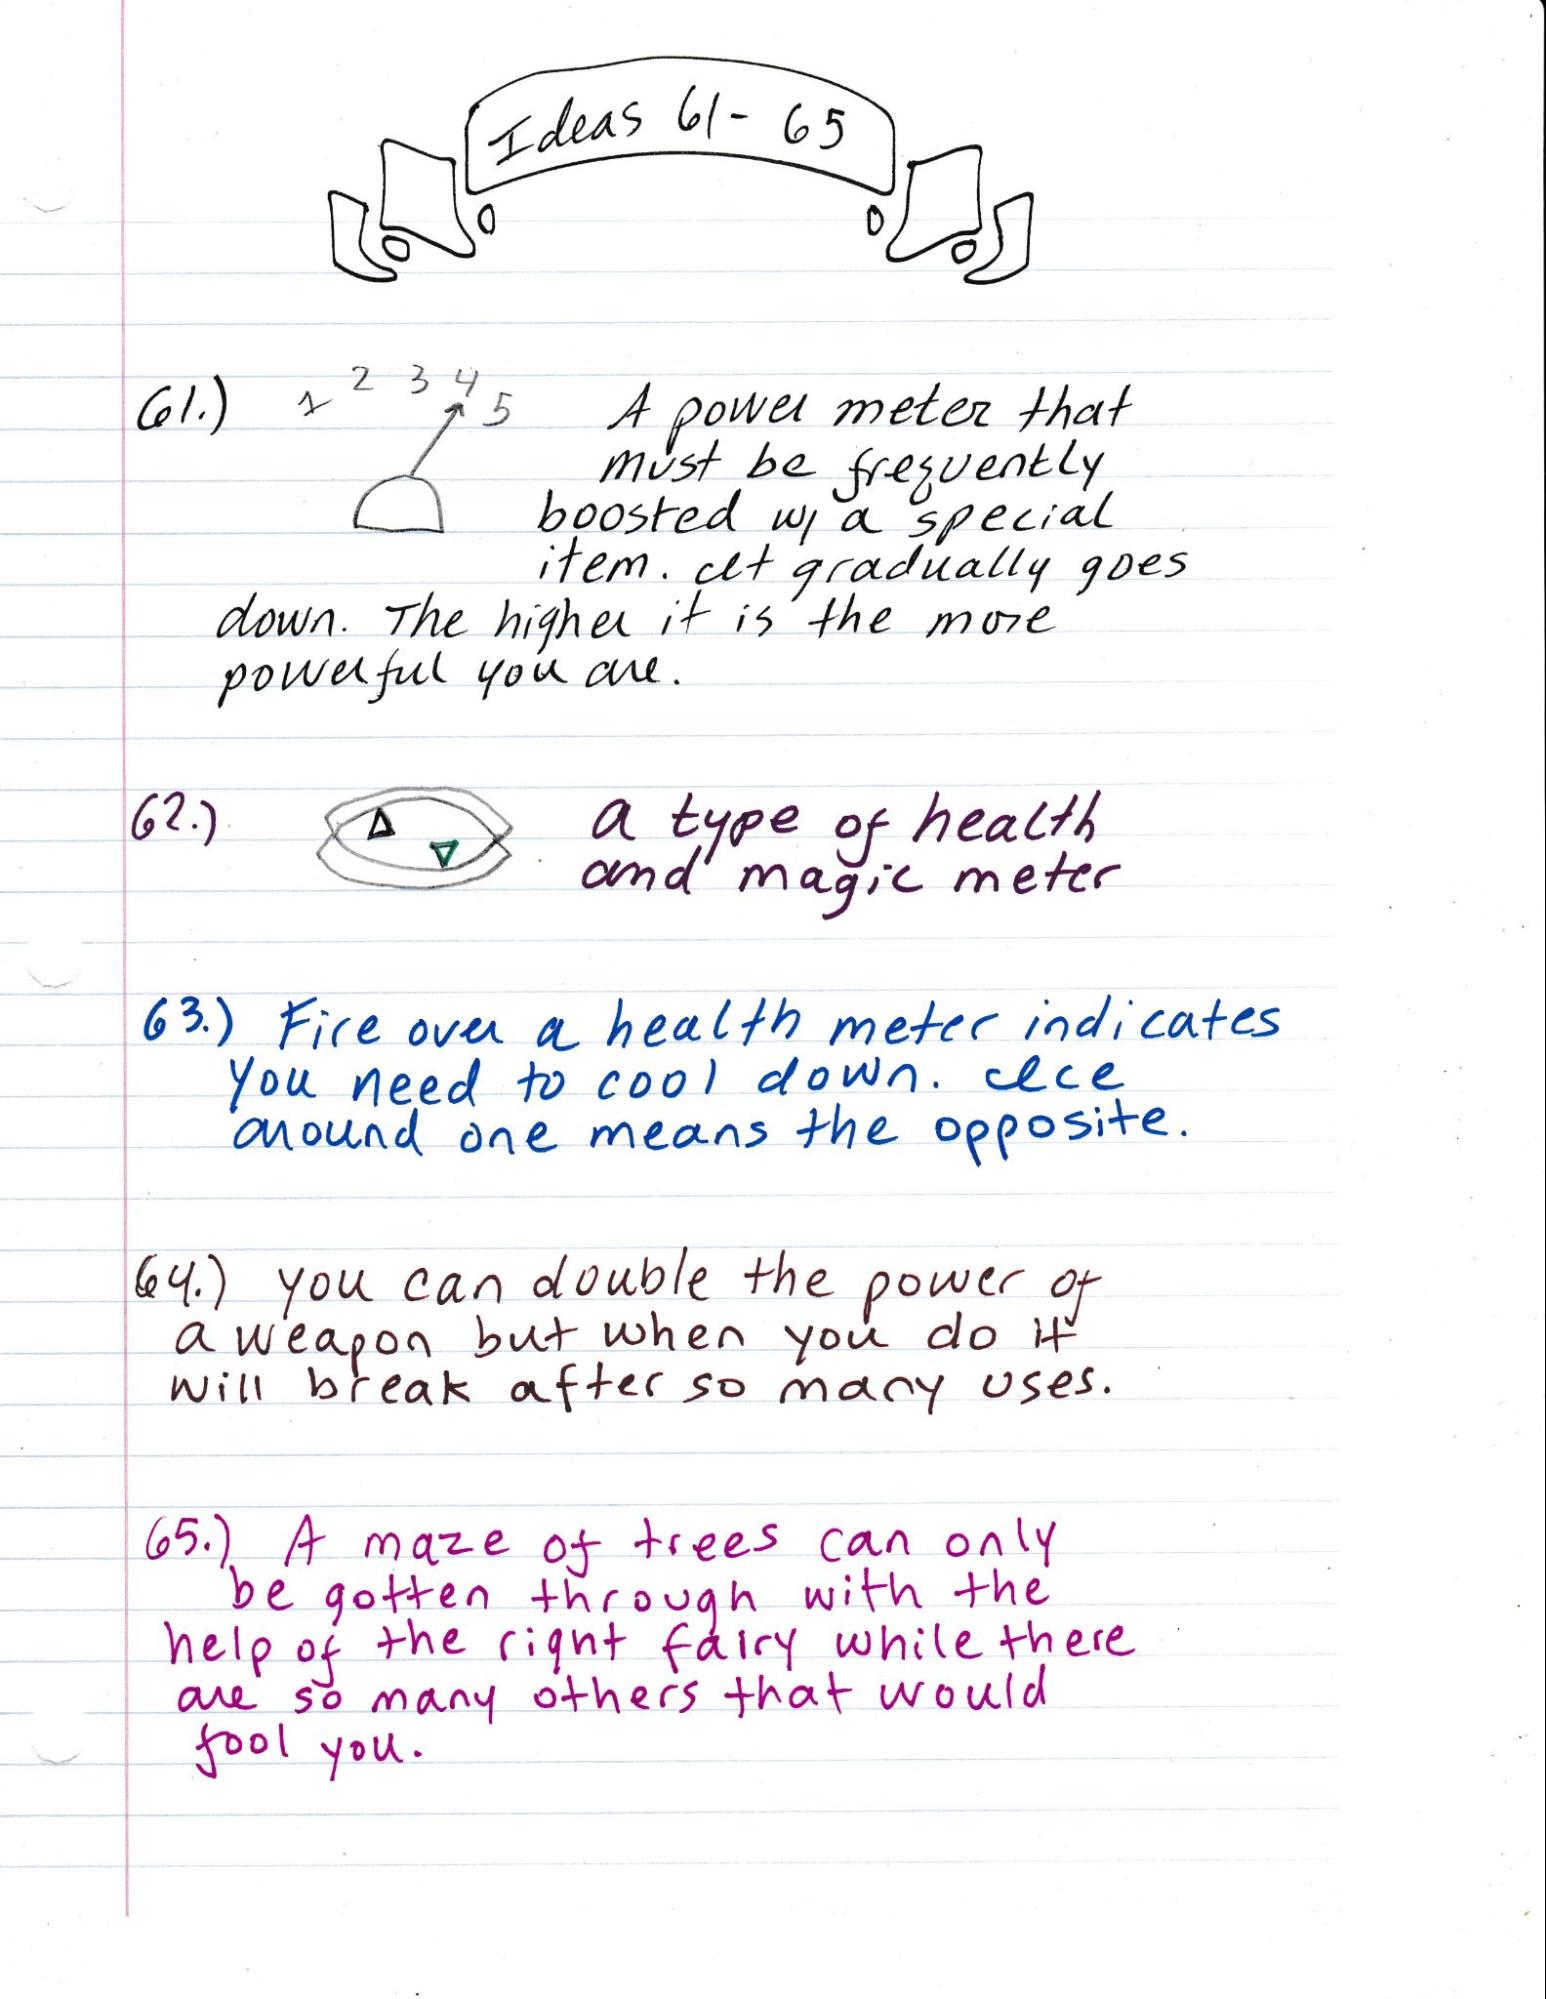 Ideas 61-65
61.) 1 2 3 4 5 A power meter that
must be frequently
boosted w/ a special
item. It gradually goes
down. The higher it is the more
powerful you are.
62.) a type of health
and magic meter
63.) Fire over a health meter indicates
you need to cool down. Ice
around one means the opposite.
64.) you can double the power of
a weapon but when you do it
will break after so many uses.
65.) A maze of trees can only
be gotten through with the
help of the right fairy while there
are so many others that would
fool you.